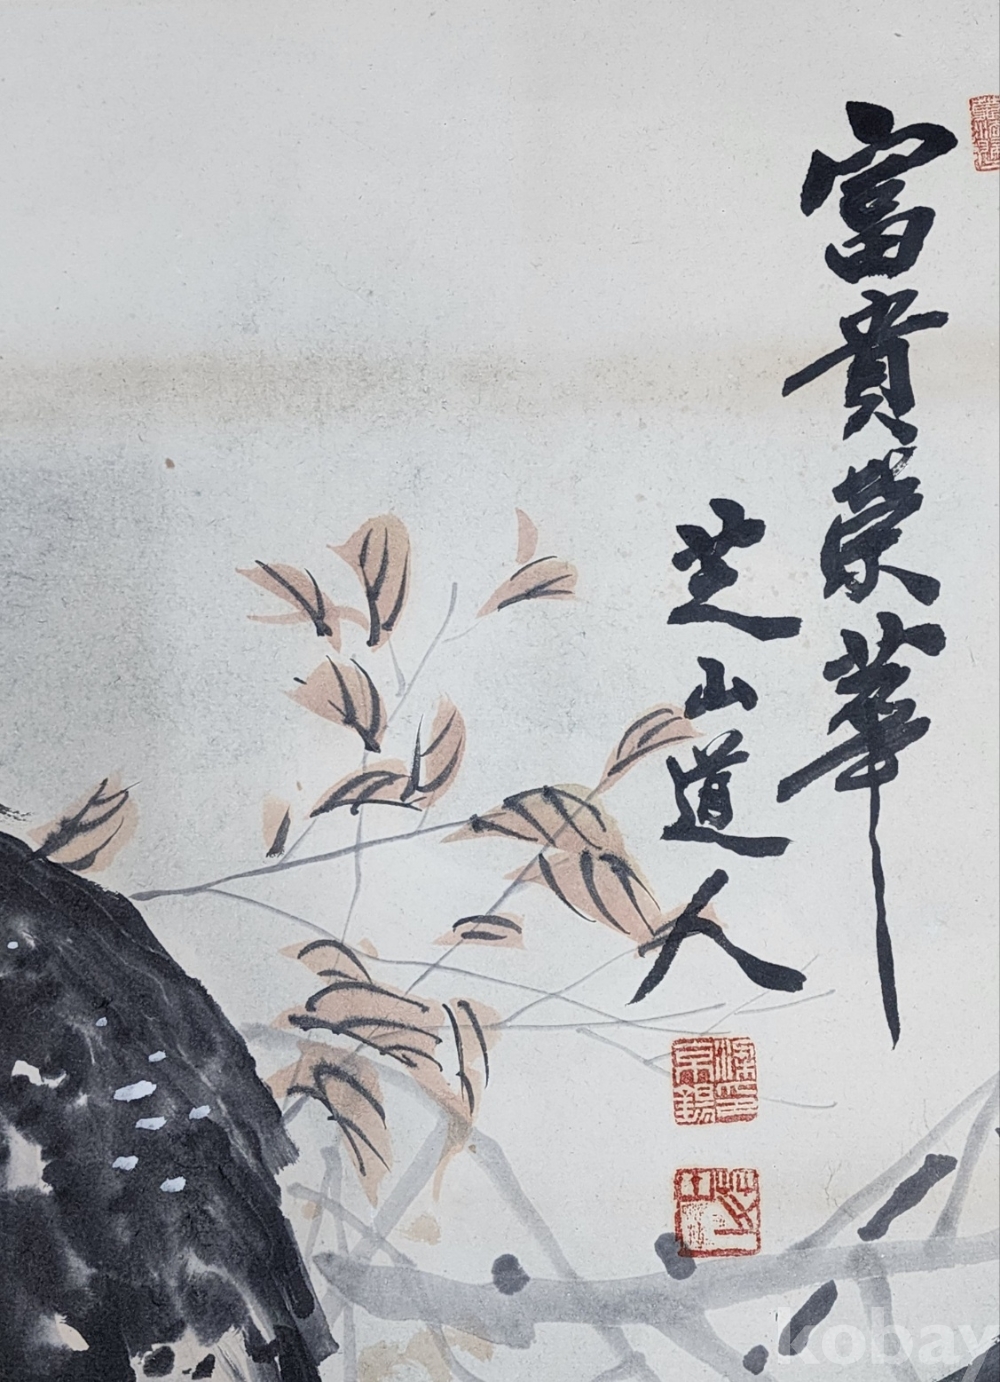 富貴榮華
芝山道人
kobay